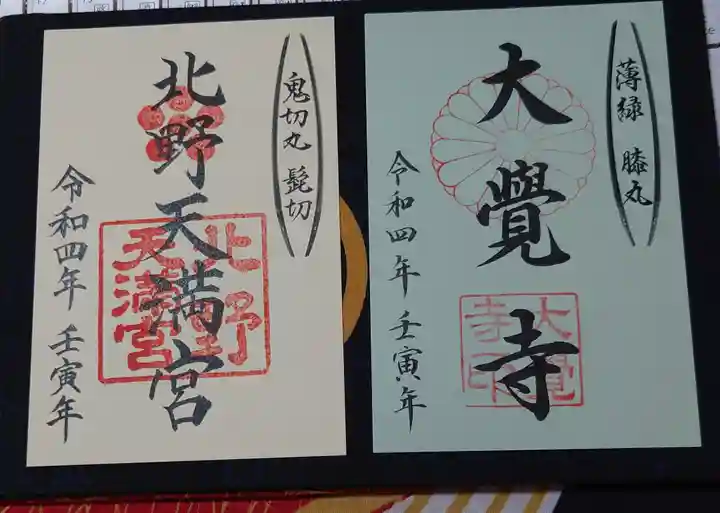 薄緑 膝丸
大覺寺
大覺
寺印
令和四年 壬寅年
鬼切丸 髭切
北野天満宮
北野
天満宮
令和四年 壬寅年